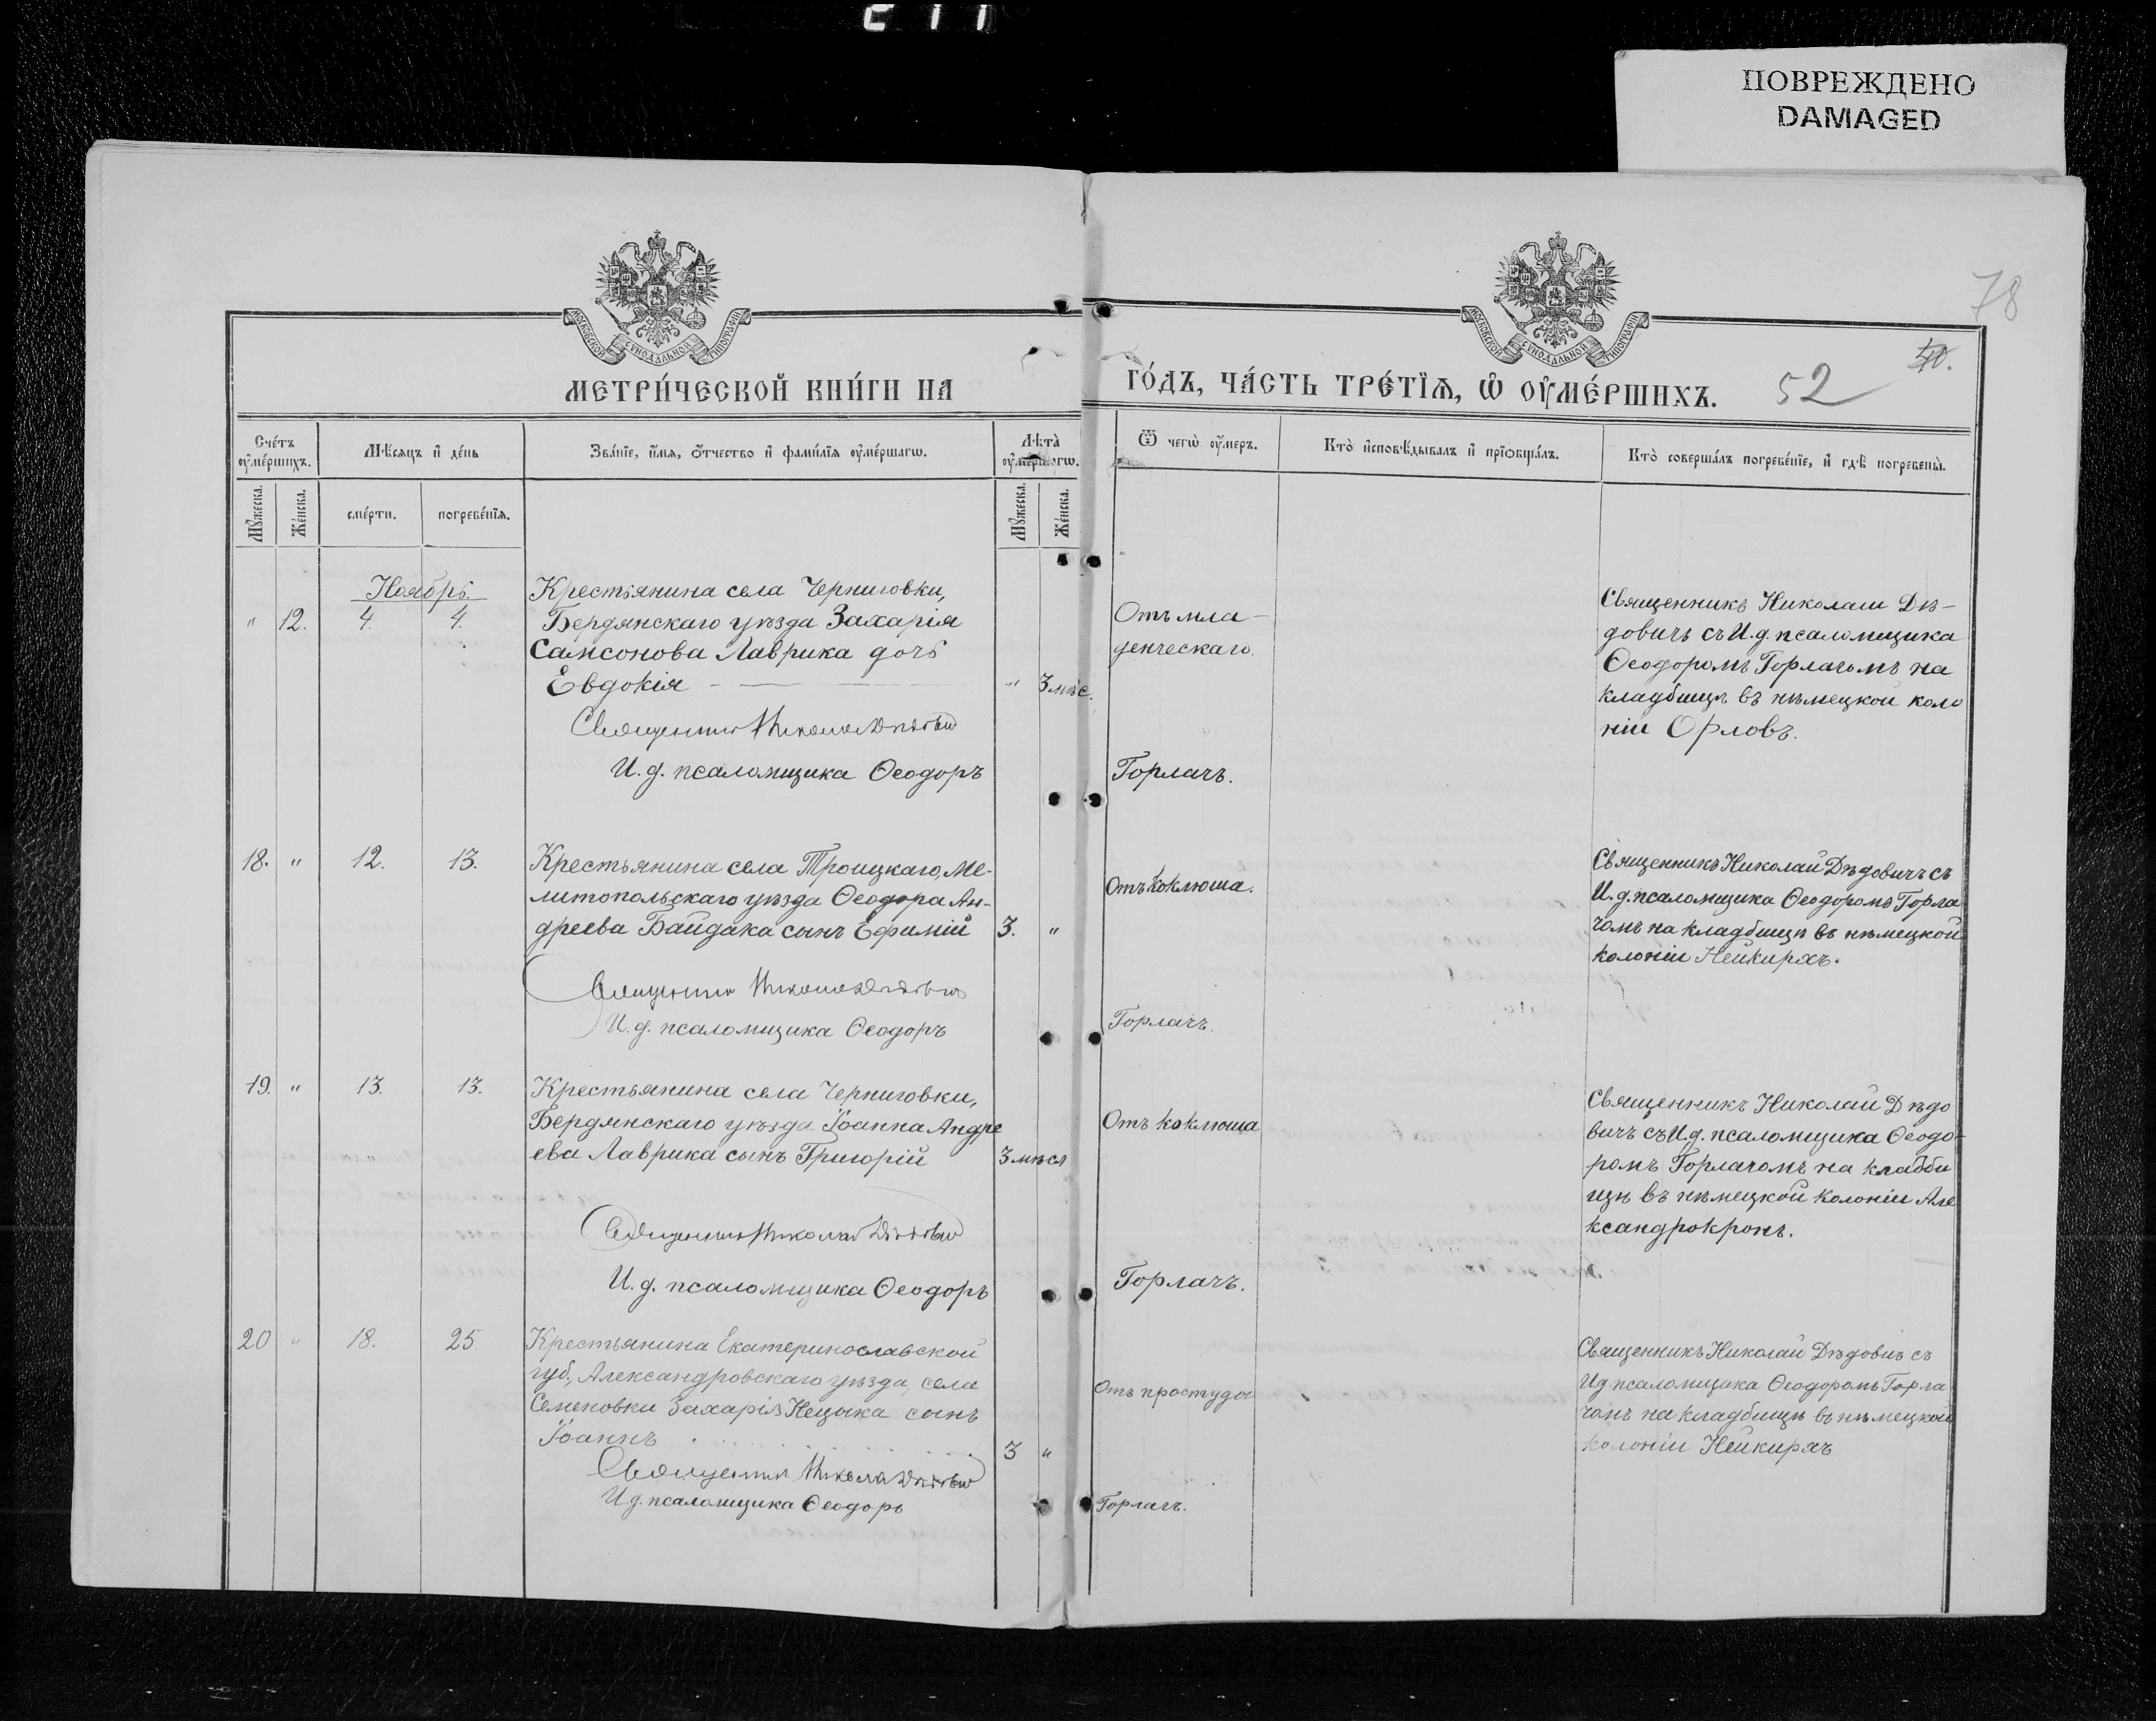 211
ПОВРЕЖДЕНО
DAMAGED
78
40.
52
МОСКОВСКОЙ СѴНОДАЛЬНОЙ ТИПОГРАФІИ
МОСКОВСКОЙ СѴНОДАЛЬНОЙ ТИПОГРАФІИ
МЕТРИ́ЧЕСКОЙ КНИ́ГИ НА
ГО́ДЪ, ЧА́СТЬ ТРЕ́ТЇѦ, Ѡ҆ ОУ҆МЕ́РШИХЪ.
Сче́тъ оу҆ме́ршихъ.
Мѣ́сѧцъ и҆ де́нь
Зва́нїе, и҆́мѧ, ѻ҆́тчество и҆ фамі́лїѧ оу҆ме́ршагѡ.
Лѣ́та̀ оу҆ме́ршагѡ.
Ѿ чегѡ̀ оу҆́меръ.
Кто̀ и҆сповѣ́дывалъ и҆ прїѡбща́лъ.
Кто̀ соверша́лъ погребе́нїе, и҆ гдѣ̀ погребены̀.
Мꙋ́жеска.
Же́нска.
сме́рти.
погребе́нїѧ.
Мꙋ́жеска.
Же́нска.
Ноябрь.
" 12. 4. 4.
Крестьянина села Черниговки,
Бердянскаго уѣзда Захарія
Самсонова Лаврика дочь
Евдокія
" 3 мѣс.
Священникъ Николай Дѣдовичъ
И. д. псаломщика Ѳеодоръ
Отъ мла-
денческаго.
Горлачъ.
Священникъ Николай Дѣ-
довичъ съ И. д. псаломщика
Ѳеодоромъ Горлачомъ на
кладбищѣ въ нѣмецкой коло
ніи Орловъ.
18. " 12. 13.
Крестьянина села Троицкаго, Ме-
литопольскаго уѣзда Ѳеодора Ан-
дреева Байдака сынъ Ефимій
3. "
Священникъ Николай Дѣдовичъ
И. д. псаломщика Ѳеодоръ
Отъ коклюша.
Горлачъ.
Священникъ Николай Дѣдовичъ съ
И. д. псаломщика Ѳеодоромъ Горла
чомъ на кладбищѣ въ нѣмецкой
колоніи Нейкирхъ.
19. " 13. 13.
Крестьянина села Черниговки,
Бердянскаго уѣзда Іоанна Андре
ева Лаврика сынъ Григорій
3 мѣся
Священникъ Николай Дѣдовичъ
И. д. псаломщика Ѳеодоръ
Отъ коклюша
Горлачъ.
Священникъ Николай Дѣдо
вичъ съ И. д. псаломщика Ѳеодо-
ромъ Горлачомъ на кладби
щѣ въ нѣмецкой колоніи Але
ксандрокронъ.
20 " 18. 25.
Крестьянина Екатеринославской
губ., Александровскаго уѣзда, села
Семеновки Захарія Нецыка сынъ
Іоаннъ
3 "
Священникъ Николай Дѣдовичъ
И д. псаломщика Ѳеодоръ
Отъ простуды
Горлачъ.
Священникъ Николай Дѣдовичъ съ
И д. псаломщика Ѳеодоромъ Горла
чомъ на кладбищѣ въ нѣмецкой
колоніи Нейкирхъ